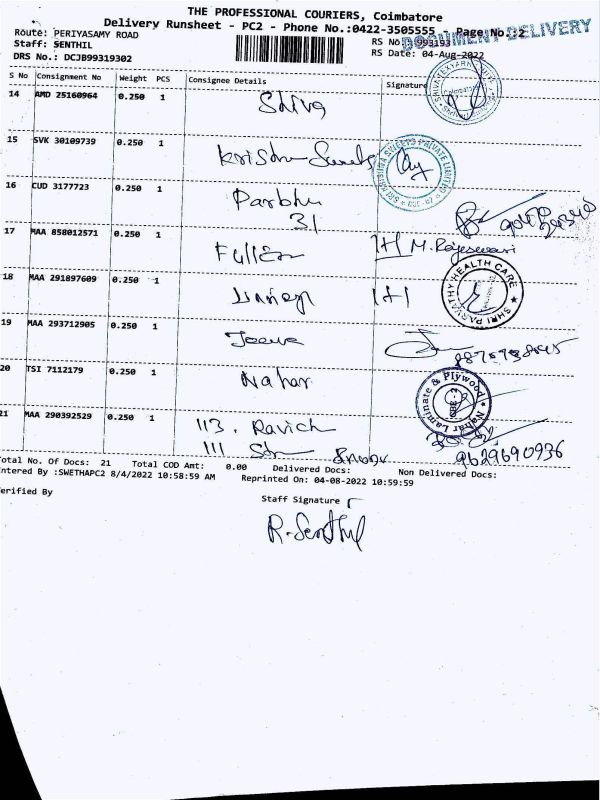 THE PROFESSIONAL COURIERS, Coimbatore
Delivery Runsheet - PC2 - Phone No.:0422-3505555 Page No.:2
DOCUMENT DELIVERY
Route: PERIYASAMY ROAD
Staff: SENTHIL
DRS No.: DCJB99319302
RS No
RS Date: 04-Aug-2022
S No Consignment No Weight PCS Consignee Details Signature
14 AMD 25160964 0.250 1 Shiva
15 SVK 30109739 0.250 1 Krishna Sweets
SRI KRISHNA SWEETS PRIVATE LIMITED
16 CUD 3177723 0.250 1 Parbhu
31
17 MAA 858012571 0.250 1 Fuller M. Rajeswari
18 MAA 291897609 0.250 1
SHRI PARVATHY HEALTH CARE
19 MAA 293712905 0.250 1 Jeeva
20 TSI 7112179 0.250 1 Nahar
Nahar Laminate & Plywood
21 MAA 290392529 0.250 1 113. Ravich
111 9629690936
Total No. Of Docs: 21 Total COD Amt: 0.00 Delivered Docs: Non Delivered Docs:
ntered By :SWETHAPC2 8/4/2022 10:58:59 AM Reprinted On: 04-08-2022 10:59:59
erified By
Staff Signature
R. Senthil